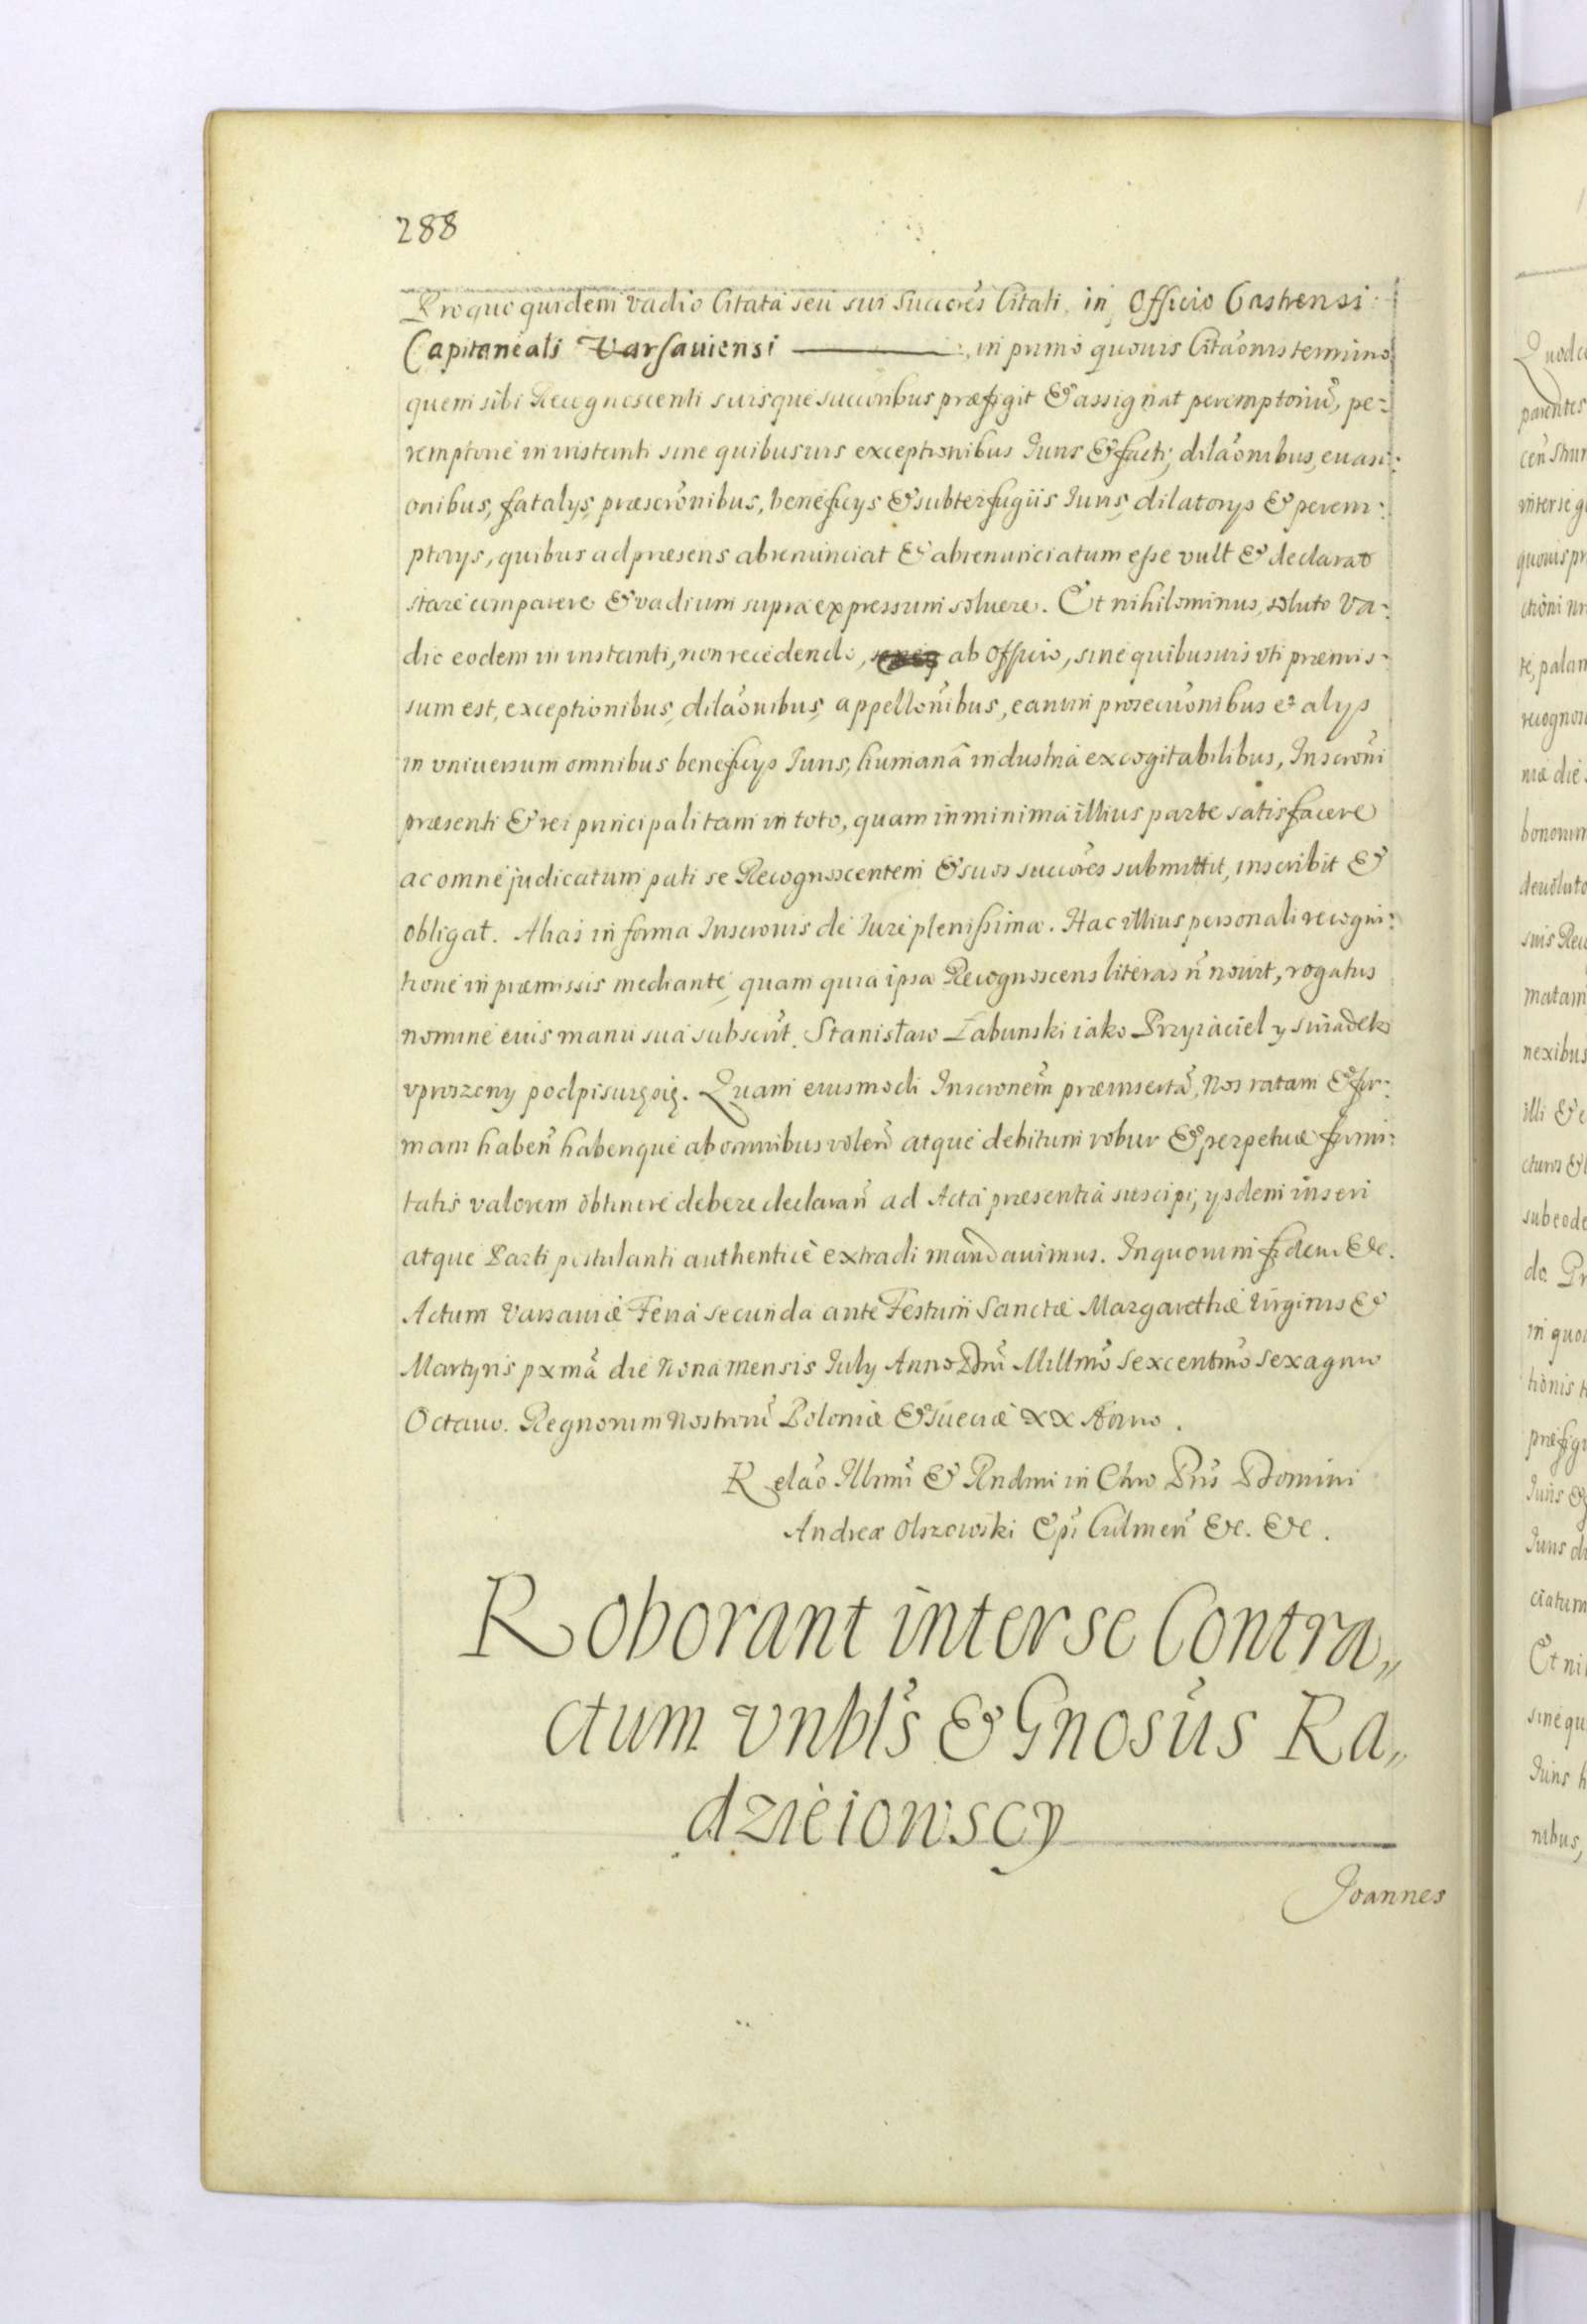 288
Pro quo quidem vadio Citata seu sui Succores Citati, in Officio Castrensi
Capitaneali Varsauiensi ———, in primo quouis Citaonis termino
quem sibi Recognoscenti suisque succoribus præfigit & assignat peremptoriũ, pe-
remptorie in instanti sine quibusuis exceptionibus Iuris & facti, dilaonibus, euasi-
onibus, fatalys, præscronibus, beneficys & subterfugiis Iuris, dilatorys & perem-
ptorys, quibus ad præsens abrenunciat & abrenunciatum esse vult & declarat
stare comparere & vadium supra expressum soluere. Et nihilominus, soluto va-
dio eodem in instanti, non recedendo, ab Officio, sine quibusuis vti præmis-
sum est, exceptionibus, dilaonibus, appellonibus, earum prosecuonibus et alys
in vniuersum omnibus beneficys Iuris, humanâ industria excogitabilibus, Inscroni
præsenti & rei principali tam in toto, quam in minima illius parte satisfacere
ac omne judicatum pati se Recognoscentem & suos succores submittit, inscribit &
obligat. Alias in forma Inscronis de Iure plenissima. Hac illius personali recogni-
tione in præmissis mediante, quam quia ipsa Recognoscens literas ñ nouit, rogatus
nomine eius manu sua subscrit. Stanisław Łabunski iako Przyiaciel y swiadek
vproszony podpisuię się. Quam eiusmodi Inscronem præinsertã, Nos ratam & fir-
mam haberi haberique ab omnibus volen atque debitum robur & perpetuæ firmi-
tatis valorem obtinere debere declaran ad Acta præsentia suscipi, ysdem inseri
atque Parti postulanti authentice extradi mandauimus. In quorum fidem &c.
Actum Varsauiæ Feria secunda ante Festum Sanctæ Margarethæ Virginis &
Martyris pxmâ die Nona mensis July Anno Dni Millmo Sexcentmo Sexagmo
Octauo. Regnorum Nostrorũ Poloniæ & Sueciæ XX Anno.
Relao Illrmi & Rndmi in Chro Pris Domini
Andreæ Olszowski Epi Culmen &c. &c.
Roborant inter se Contra„
ctum vnbls & Gnosus Ra„
dzieiowscy
Joannes